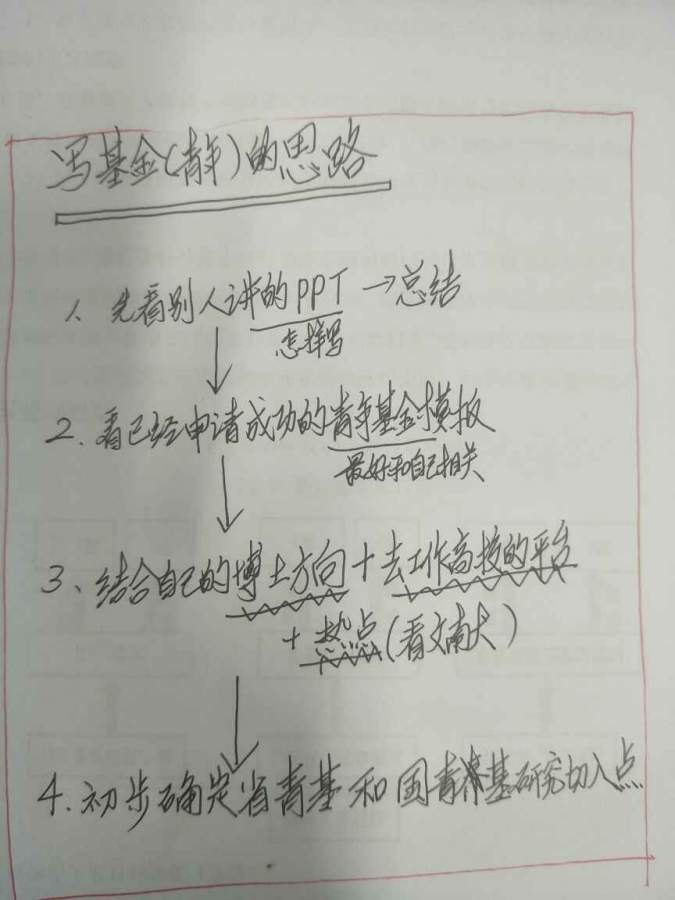 写基金(青年)的思路
1、先看别人讲的PPT→总结
怎样写
2、看已经申请成功的青年基金模板
最好和自己相关
3、结合自己的博士方向+去工作高校的平台
+热点(看文献)
4.初步确定省青基和国青基研究切入点